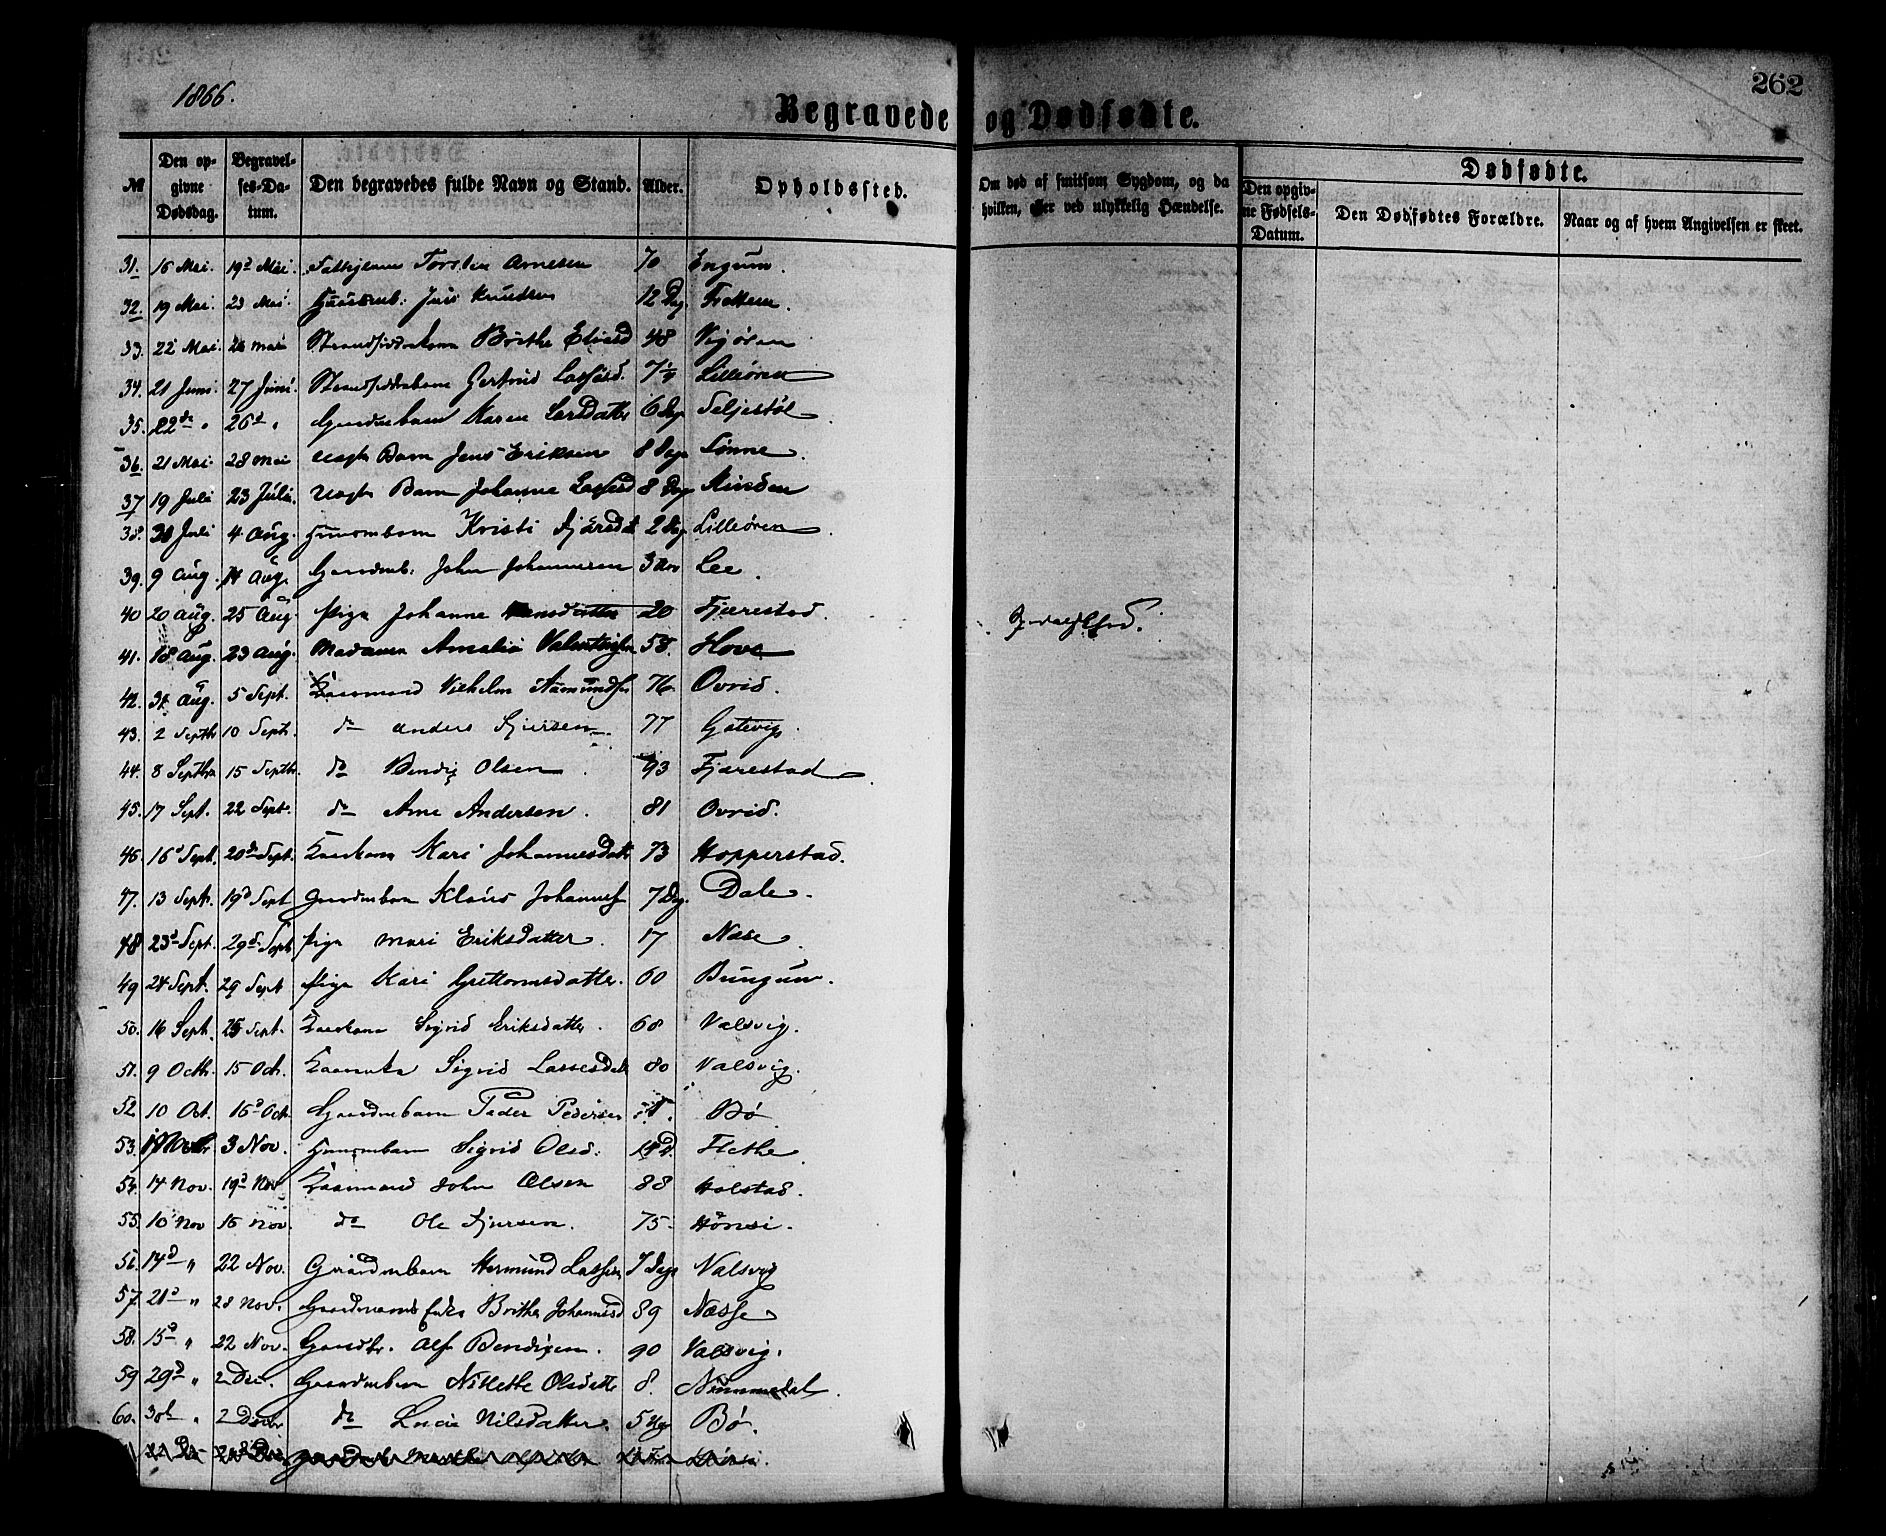 1866.
262
Begravede og Dødfødte.
№ Den opgivne Dødsdag. Begravelses-Datum. Den begravedes fulde Navn og Stand. Alder. Opholdssted. Om død af smitsom Sygdom, og da hvilken, eller ved ulykkelig Hændelse. Dødfødte. Den opgivne Fødsels-Datum. Den Dødfødtes Forældre. Naar og af hvem Angivelsen er skeet.
31. 16 Mai. 19d Mai. Torsten Arnesen 70 Engum.
32. 19 Mai. 23 Mai. Knudsen 12 Dag. Frettem.
33. 22 Mai. 26 Mai Brithe 48 Vigøren
34. 21 Juni. 27 Juni. Gertrud Lassesd. 7 Lilleøren
35. 22de " 26d " Gaardmbarn Karen Larsdatter 6 Dge Seljestøl
36. 21 Mai. 28 Mai uægte Barn Jens Eriksen 8 Dage Lønne.
37 19 Juli 23 Juli. Uægte Barn Johanne Lassesd 8 Dag
38. 30 Juli 4 Aug. Huusmbarn Kristi 2 Dag Lilleøren
39. 9 Aug. 14 Aug. Gaardmb. John Johannesen 3 Lee.
40 20 Aug. 25 Aug. Pige Johanne 20 Fjærestad.
41. 18 Aug. 23 Aug. Madamen Amalia 58. Hove
42. 31 Aug. 5 Sept. Kaarmand Vilhelm Aamunds. 76. Ovrid.
43. 2 Septbr 10 Sept. do Anders Sjursen 77 Gatevig.
44. 8 Septbr 15 Septbr. do Bendix Olsen 93 Fjærestad
45. 17 Sept. 22 Sept. do Arne Andersen. 81 Ovrid.
46. 16d Sept. 20de Sept. Kaarkone Kari Johannesdatter 73 Hopperstad.
47. 13 Septr. 19d Sept Gaardmbarn Klaus Johannes. 7 Dag. Dale.
48 23d Sept. 29d Sept Pige Mari Eriksdatter. 17 Nese.
49 24 Sept. 29 Sept Pige Kari Guttormsdatter. 60 Bungum.
50. 16 Sept. 25 Sept. Kaarkone Sigrid Eriksdatter. 68 Valsvig.
51. 9 Octbr. 15 Octr. Sigrid Lassesdatt 80 Valsvig.
52. 10 Oct. 16d Octr. Gaardmbarn Peder Pedersen Bø
53. 3 Nov. Huusmbarn Sigrid Olsd. Flethe
54. 14 Nov. 19d Nov Kaarmand John Olsen 88 Holstad.
55. 10 Nov 16 Nov. do Ole Sjursen. 75. Hønsi.
56. 14d " 22 Nov. Gaardmbarn Hermund Lassen 7 Dage Valsvig
57. 21d " 28 Nov. Gaardmands Enke Brithe Johannesd 89 Næsse
58. 15d " 22 Nov. Gaardbr. Alf Bendixen. 90 Valsvig.
59 29d " 2 Dec. Gaardmbarn Nillethe Olsdatter 8. Nummedal.
60. 30t " 2 Decbr. do Lucie Nilsdatter. 5 Bø.